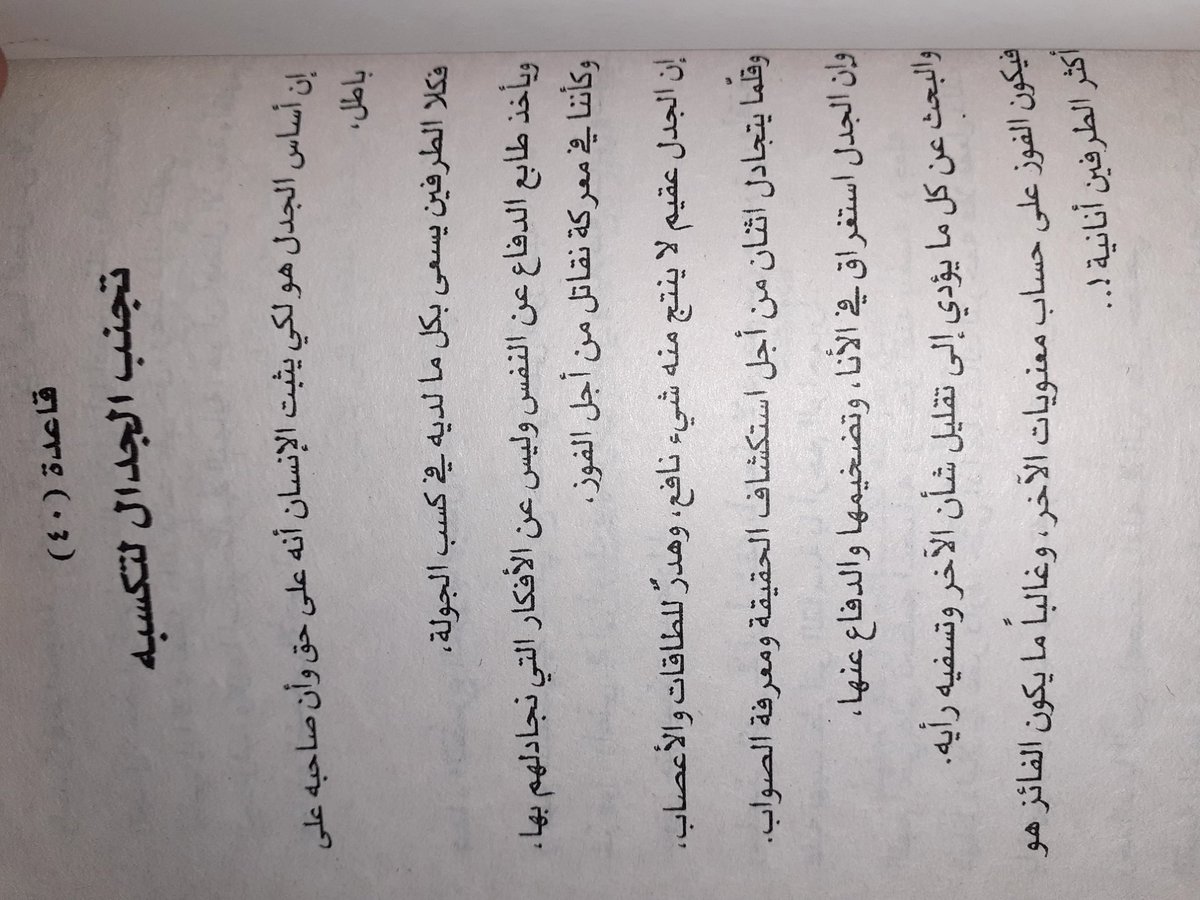 قاعدة (٤٠)
تجنب الجدال لتكسبه
إن أساس الجدل هو لكي يثبت الإنسان أنه على حق وأن صاحبه على
باطل،
فكلا الطرفين يسعى بكل ما لديه في كسب الجولة،
ويأخذ طابع الدفاع عن النفس وليس عن الأفكار التي نجادلهم بها،
وكأننا في معركة نقاتل من أجل الفوز،
إن الجدل عقيم لا ينتج منه شيء نافع، وهدرٌ للطاقات والأعصاب،
وقلّما يتجادل اثنان من أجل استكشاف الحقيقة ومعرفة الصواب.
وإن الجدل استغراق في الأنا، وتضخيمها والدفاع عنها،
والبحث عن كل ما يؤدي إلى تقليل شأن الآخر وتسفيه رأيه.
فيكون الفوز على حساب معنويات الآخر، وغالباً ما يكون الفائز هو
أكثر الطرفين أنانية!..